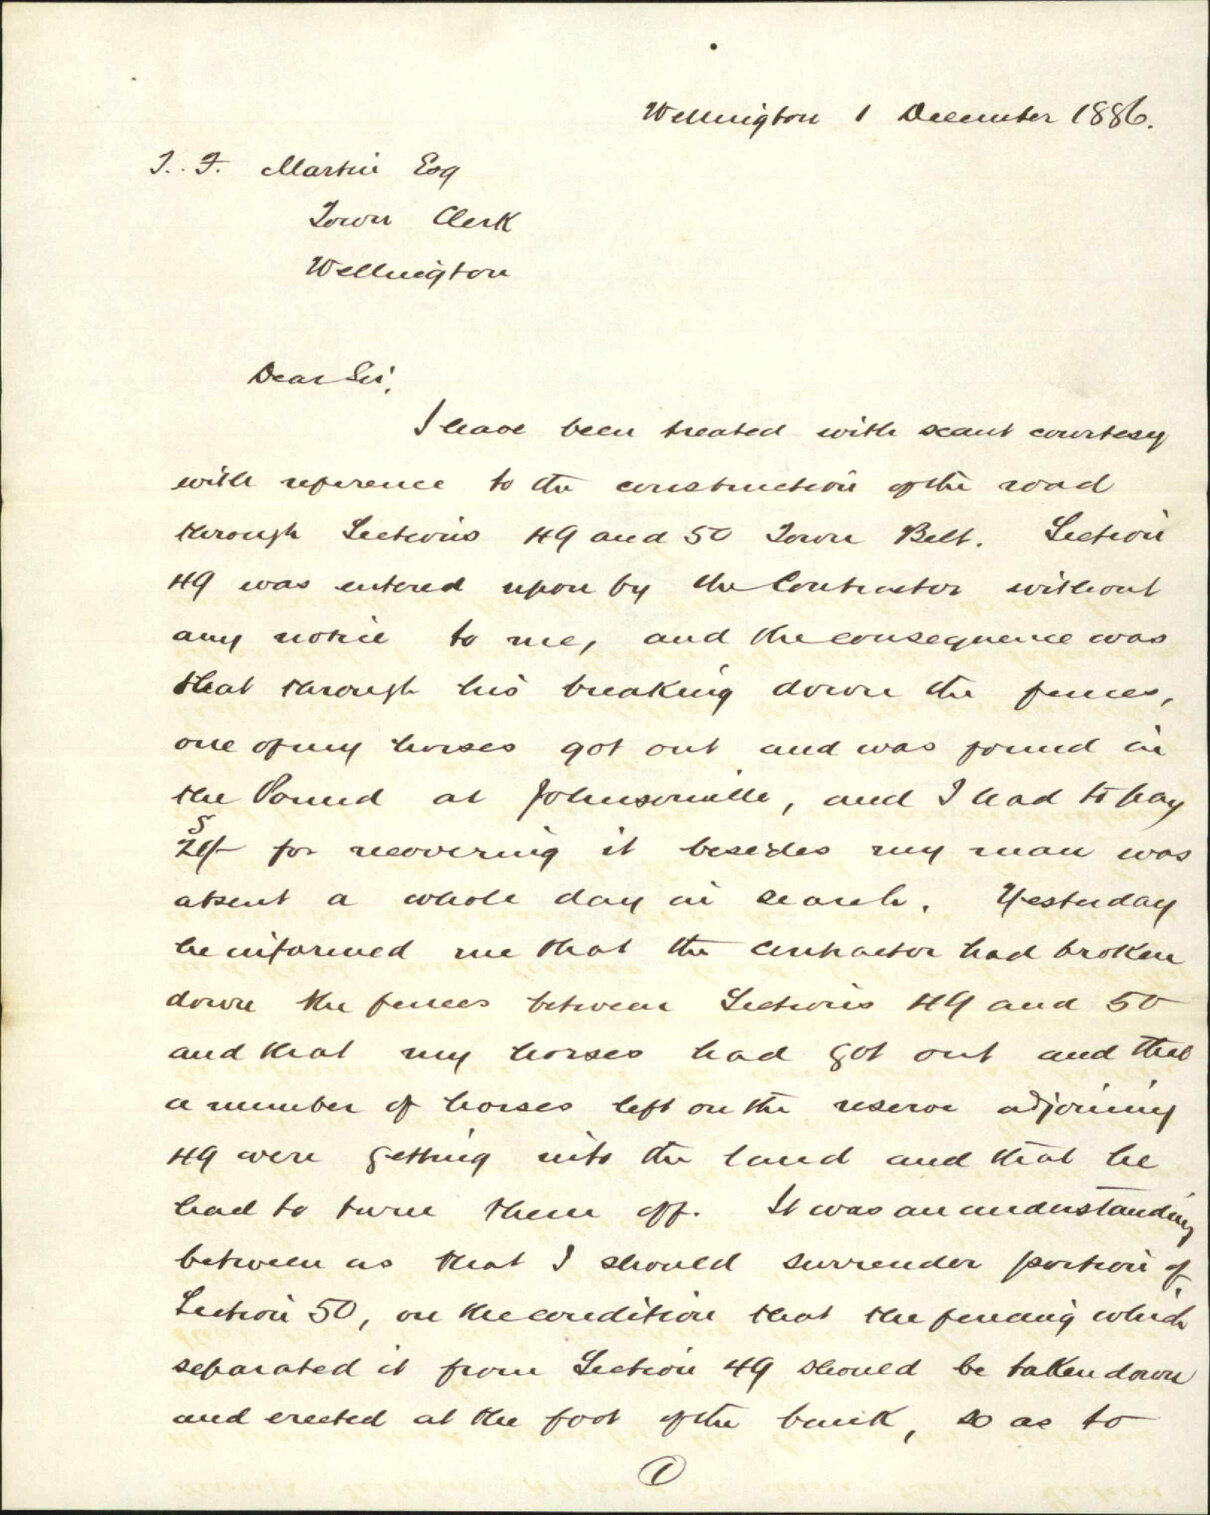 Wellington 1 December 1886.
J. F. Martin Esq
Town Clerk
Wellington
Dear Sir,
I have been treated with scant courtesy
with reference to the construction of the road
through Sections 49 and 50 Town Belt. Section
49 was entered upon by the Contractor without
any notice to me, and the consequence was
that through his breaking down the fences,
one of my horses got out and was found in
the Pound at Johnsonville, and I had to pay
for recovering it besides my man was
absent a whole day in search. Yesterday
he informed me that the contractor had broken
down the fences between Sections 49 and 50
and that my horses had got out and that
a number of horses left on the reserve adjoining
49 were getting into the land and that he
had to turn them off. It was an understanding
between us that I should surrender portion of
Section 50, on the condition that the fencing which
separated it from Section 49 should be taken down
and erected at the foot of the bank, so as to
1